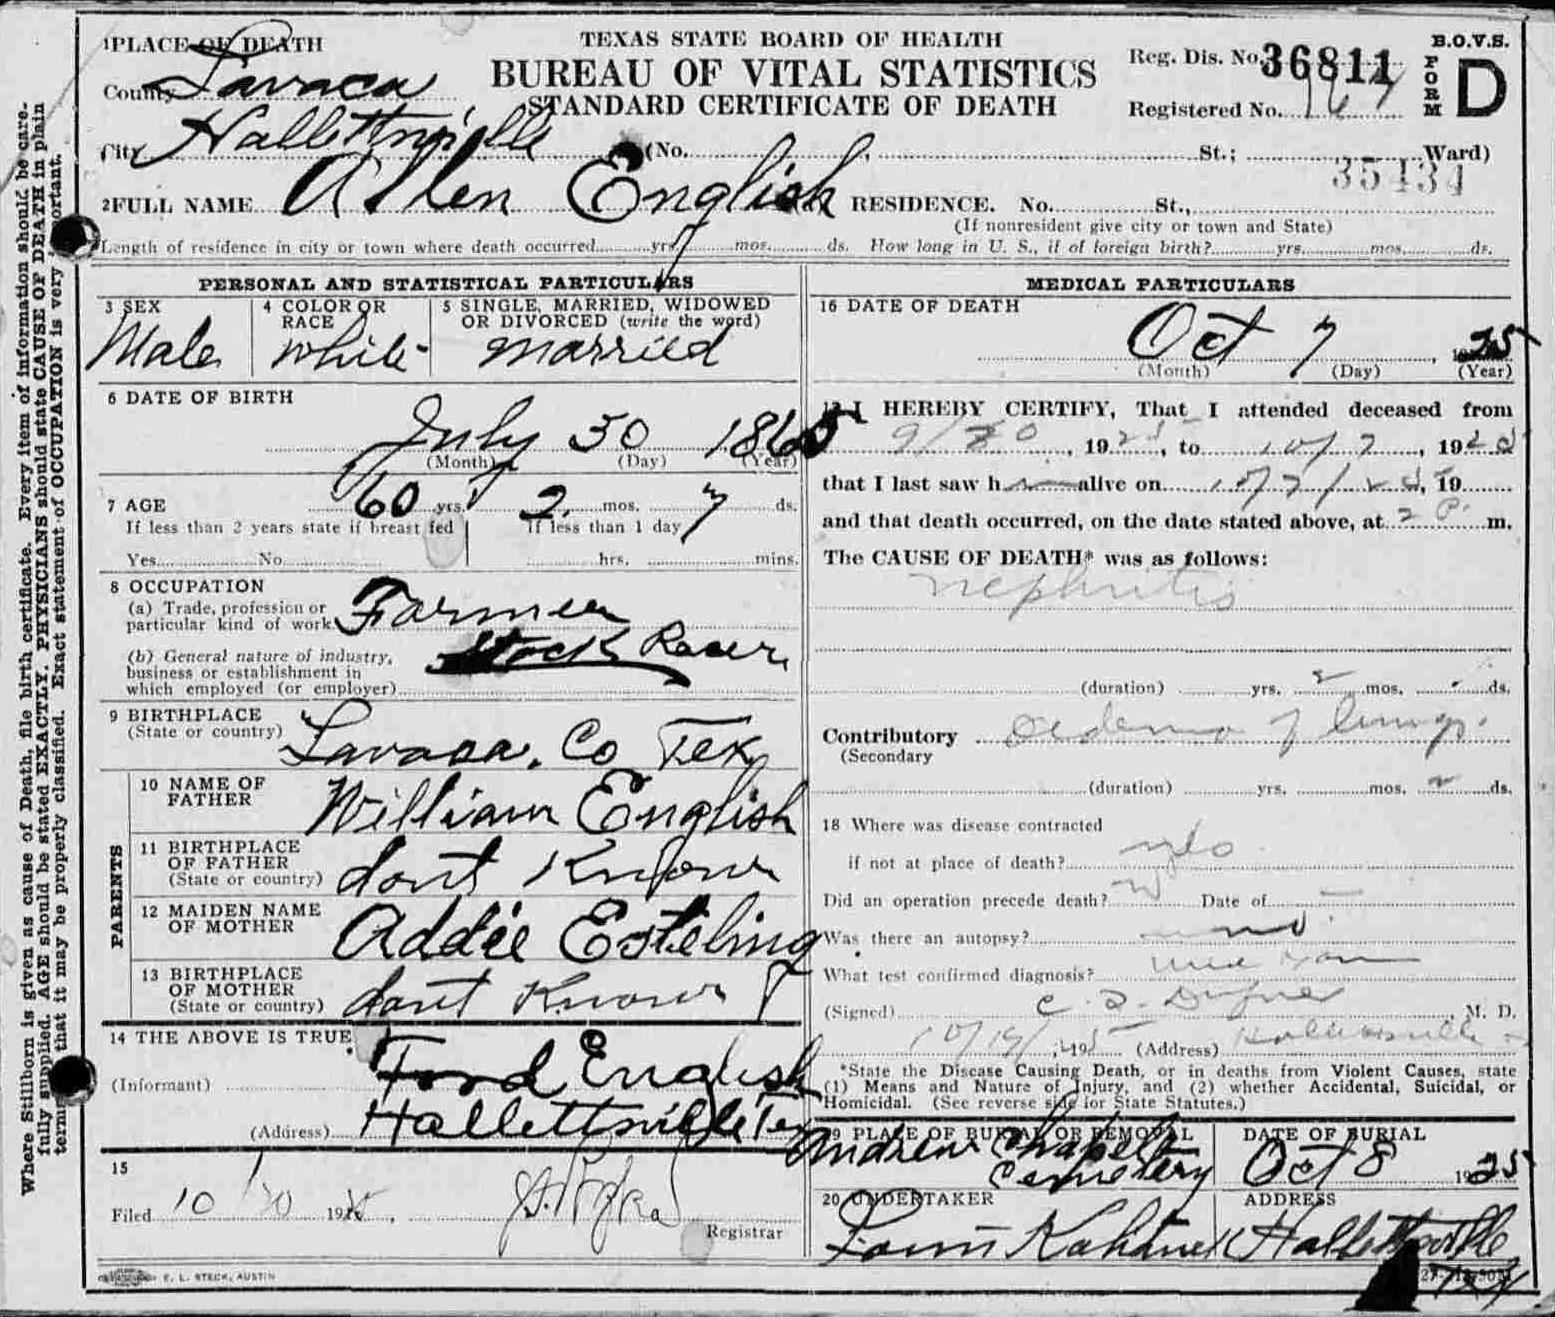 1 PLACE OF DEATH
County Lavaca
City Hallettsville (No. , St.; Ward)
TEXAS STATE BOARD OF HEALTH
BUREAU OF VITAL STATISTICS
STANDARD CERTIFICATE OF DEATH
Reg. Dis. No. 36811
Registered No. 167
B.O.V.S.
FORM D
35434
2 FULL NAME Allen English RESIDENCE. No. St.,
(If nonresident give city or town and State)
Length of residence in city or town where death occurred yrs. mos. ds. How long in U. S., if of foreign birth? yrs. mos. ds.
PERSONAL AND STATISTICAL PARTICULARS
3 SEX
Male
4 COLOR OR RACE
White
5 SINGLE, MARRIED, WIDOWED
OR DIVORCED (write the word)
married
6 DATE OF BIRTH
July 30 1865
(Month) (Day) (Year)
7 AGE 60 yrs. 2 mos. 7 ds.
If less than 2 years state if breast fed If less than 1 day
Yes No hrs. mins.
8 OCCUPATION
(a) Trade, profession or
particular kind of work Farmer
(b) General nature of industry,
business or establishment in
which employed (or employer) Stock
9 BIRTHPLACE
(State or country) Lavaca. Co Tex
PARENTS
10 NAME OF
FATHER William English
11 BIRTHPLACE
OF FATHER
(State or country) dont Know
12 MAIDEN NAME
OF MOTHER Addie Esteling
13 BIRTHPLACE
OF MOTHER
(State or country) dont Know
14 THE ABOVE IS TRUE
(Informant) Ford English
(Address) Hallettsville Tex
15
Filed 10/20 1925,
Registrar
E. L. STECK, AUSTIN
MEDICAL PARTICULARS
16 DATE OF DEATH
Oct 7, 1925
(Month) (Day) (Year)
17 I HEREBY CERTIFY, That I attended deceased from
9/30, 1925, to 10/7, 1925
that I last saw h alive on 10/7/25, 19
and that death occurred, on the date stated above, at 2 P. m.
The CAUSE OF DEATH* was as follows:
nephritis
(duration) yrs. 2 mos. ds.
Contributory Oedema of lungs.
(Secondary
(duration) yrs. mos. 2 ds.
18 Where was disease contracted
if not at place of death?
Did an operation precede death? Date of
Was there an autopsy? no
What test confirmed diagnosis?
(Signed) M. D.
10/19/, 1925 (Address) Hallettsville
*State the Disease Causing Death, or in deaths from Violent Causes, state
(1) Means and Nature of Injury, and (2) whether Accidental, Suicidal, or
Homicidal. (See reverse side for State Statutes.)
19 PLACE OF BURIAL OR REMOVAL
Andrew Chapel
Cemetery
DATE OF BURIAL
Oct 8 1925
20 UNDERTAKER
ADDRESS
Hallettsville
Tex
Where Stillborn is given as cause of Death, file birth certificate. Every item of information should be care-
fully supplied. AGE should be stated EXACTLY. PHYSICIANS should state CAUSE OF DEATH in plain
terms that it may be properly classified. Exact statement of OCCUPATION is very important.